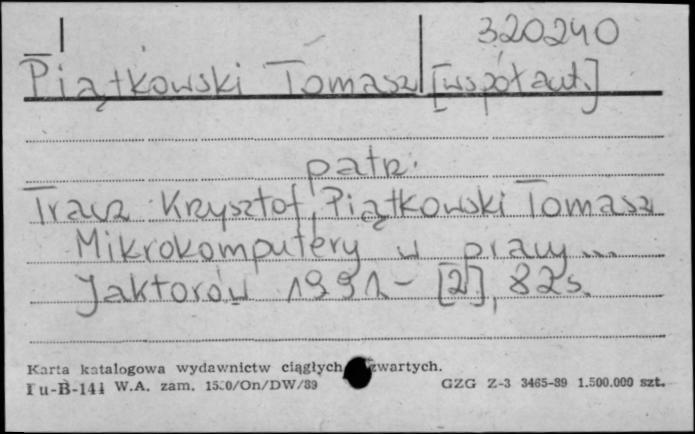 320240
Piątkowski Tomasz [współaut.]
patrz.
Tracz Krzysztof, Piątkowski Tomasz
Mikrokomputery w pracy...
Jaktorów 1991 - [2], 82 s.
Karta katalogowa wydawnictw ciągłych zwartych.
Pu-B-144 W.A. zam. /On/DW/89 GZG Z-3 3465-89 1.500.000 szt.